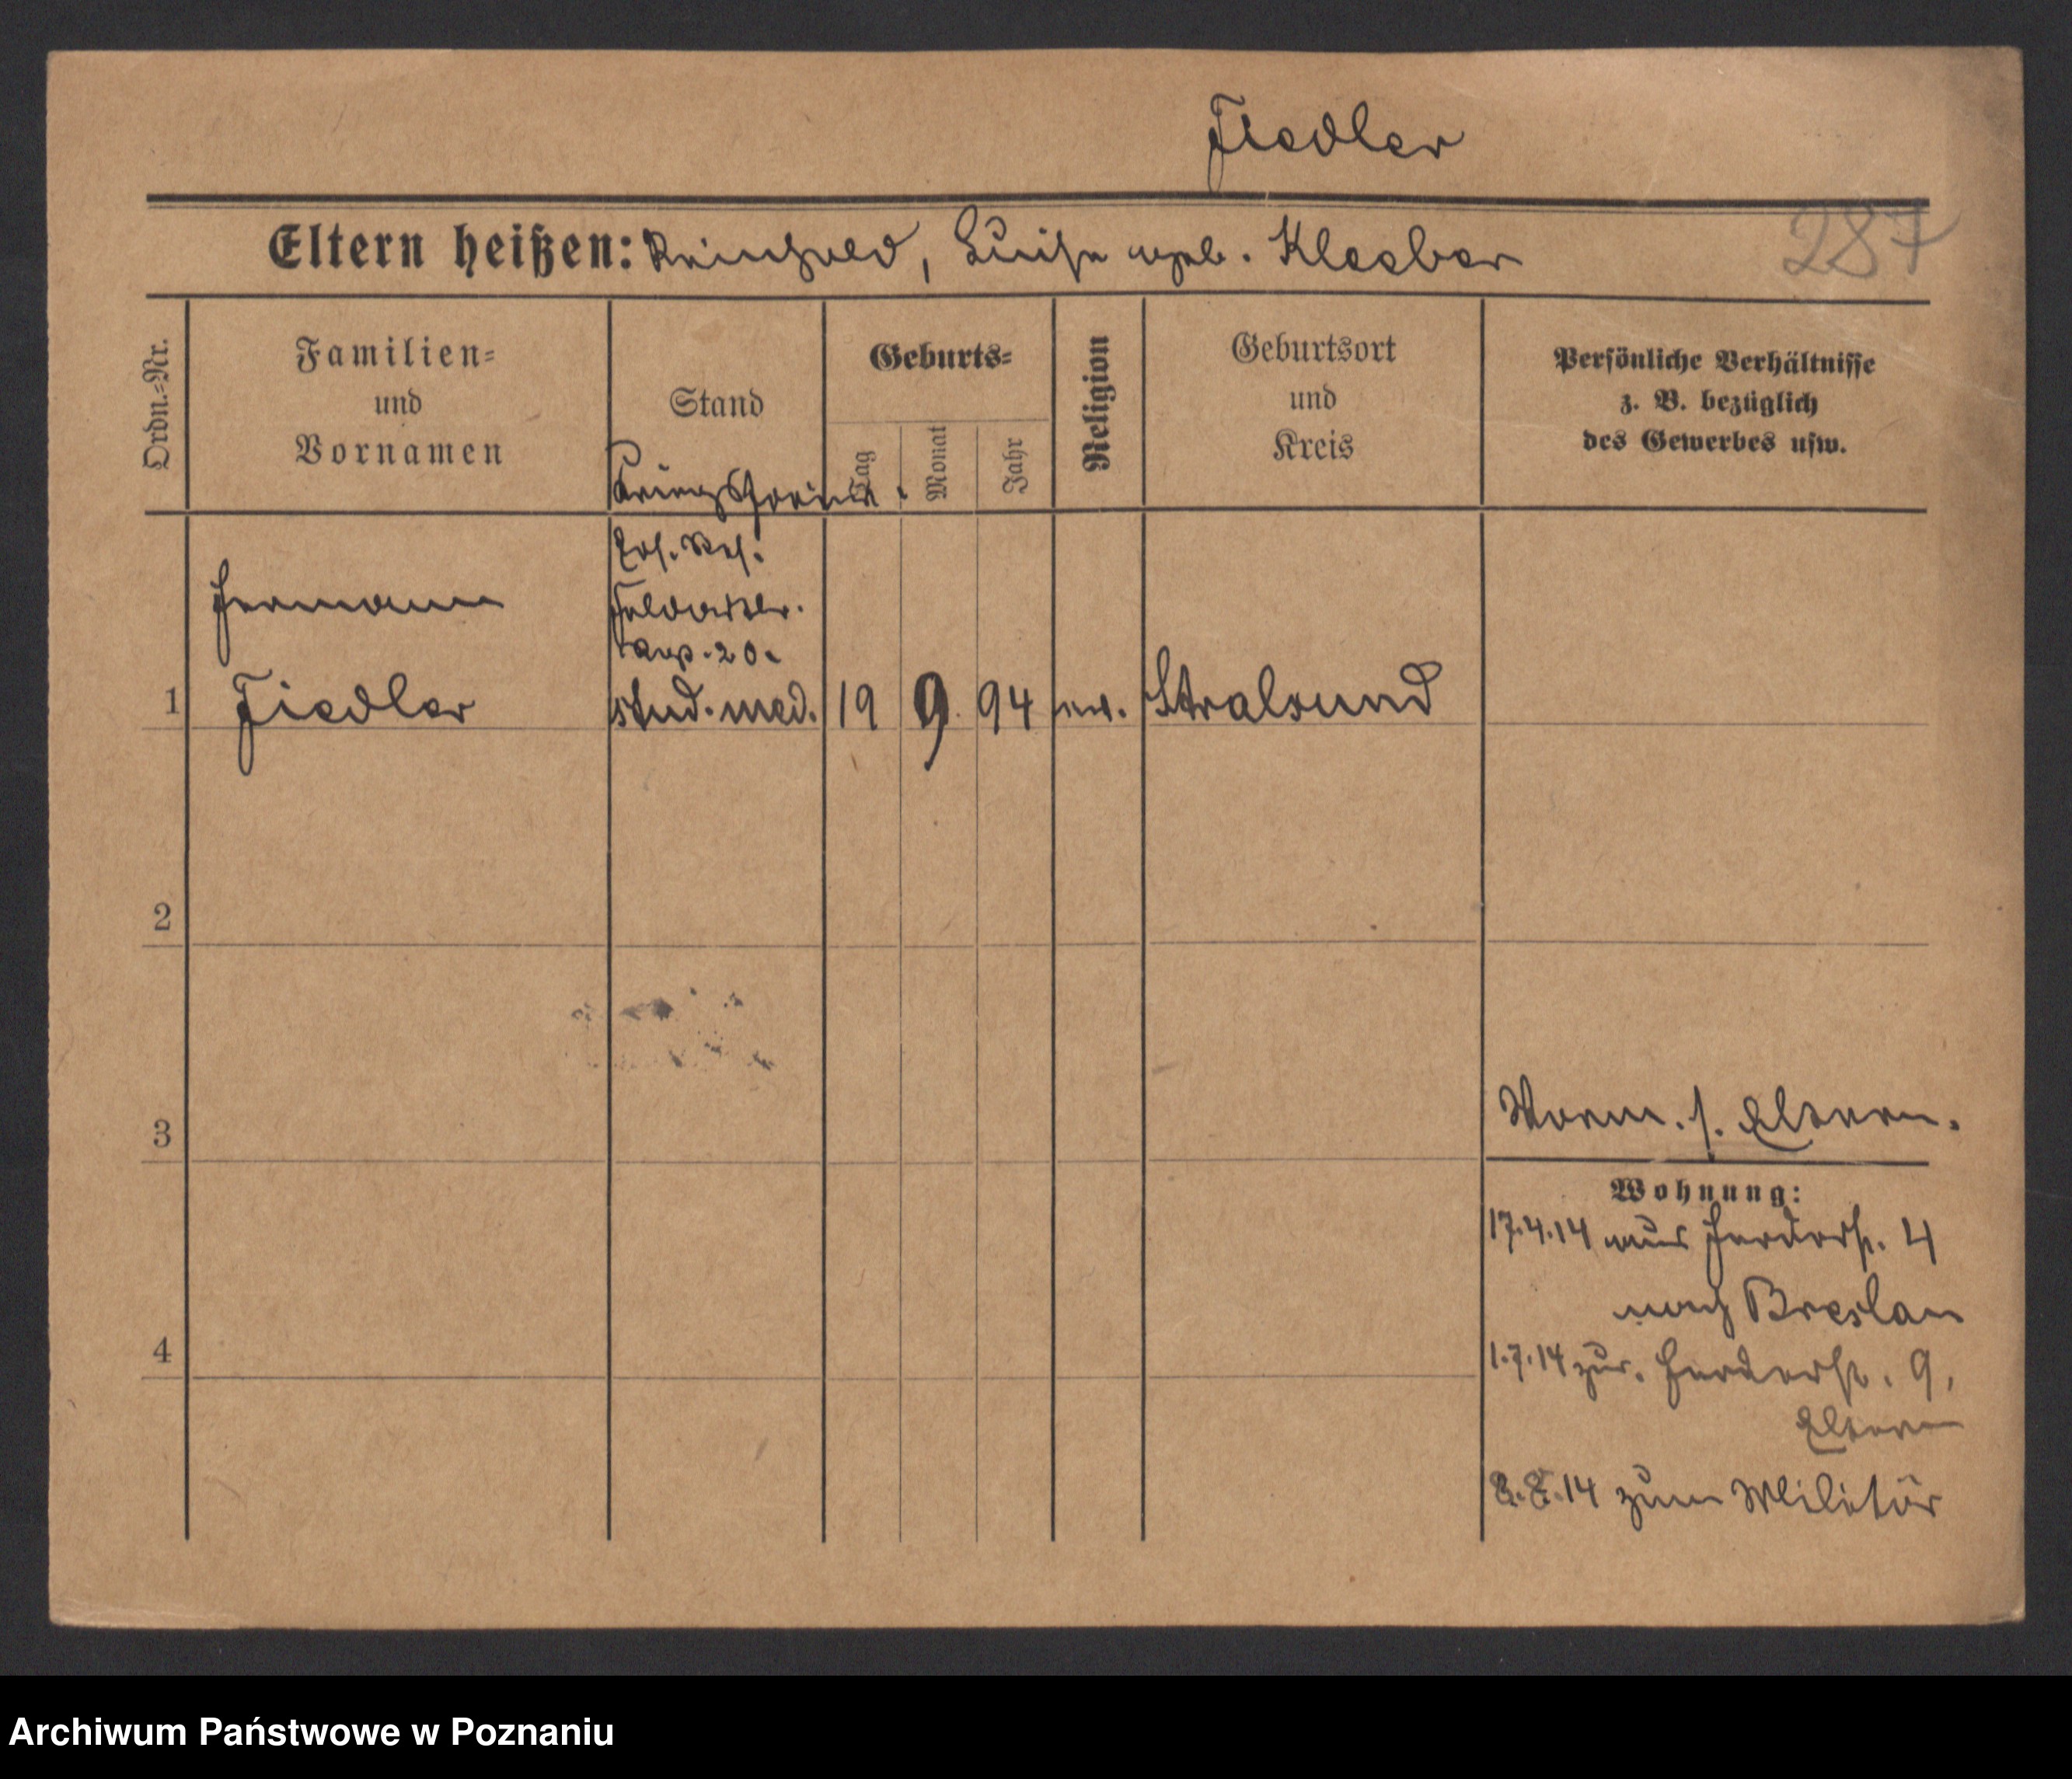 Fiedler
287
Eltern heißen: Reinhold, Luise geb. Kleeber
Ordn.-Nr.
Familien-
und
Vornamen
Stand
Geburts-
Tag
Monat
Jahr
Religion
Geburtsort
und
Kreis
Persönliche Verhältnisse
z. B. bezüglich
des Gewerbes usw.
Kriegsfreiw.
Ers. Res.
Feldartler.
Rgt. 20.
Hermann
1 Fiedler stud. med. 19 9 94 ev. Stralsund
2
3
Vorm. s. Eltern.
Wohnung:
17.4.14 aus Herderst. 4
nach Breslau
4
1.7.14 zur. Herderst. 9,
Eltern
8.8.14 zum Militär
Archiwum Państwowe w Poznaniu